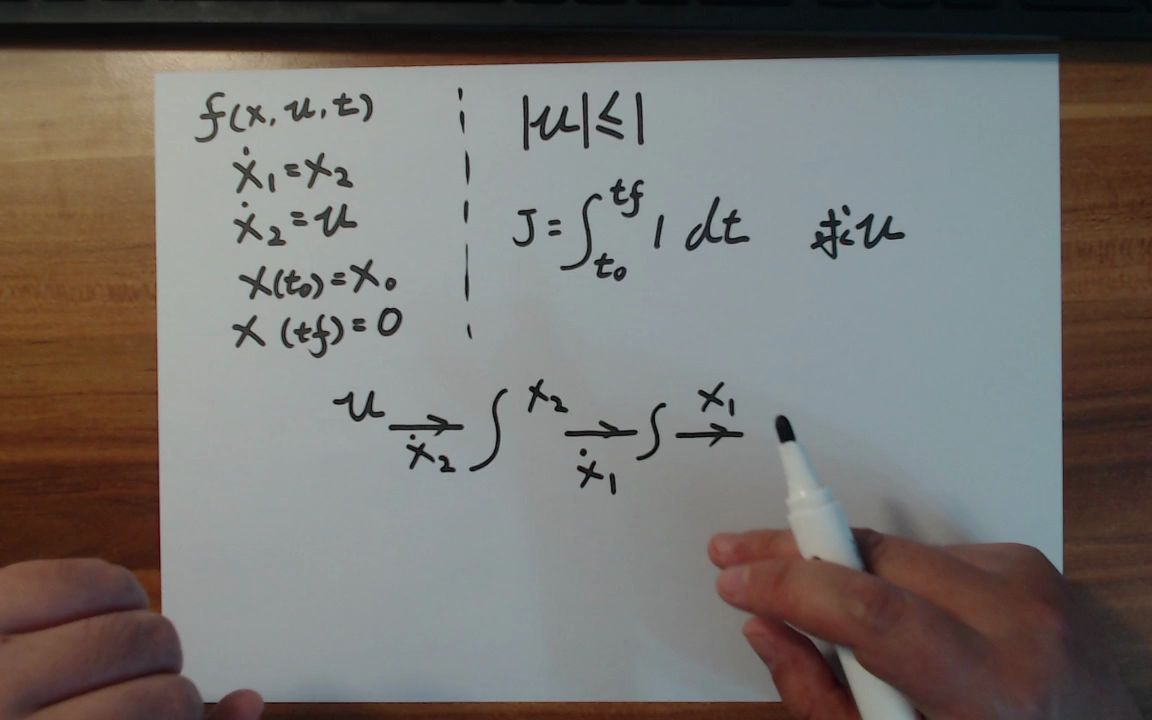 f(x, u, t)
ẋ₁=x₂
ẋ₂=u
x(t₀)=x₀
x(tf)=0
|u|≤1
J=∫_{t₀}^{tf} 1 dt 求u
u → ẋ₂ ∫ x₂ → ẋ₁ ∫ → x₁